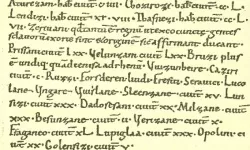 Aturezani habt ciuit c
Chozirozi habt ciuit cc L
Lendizi habt ciuit xc viii Thafnezi habt ciuit cc L
vii Zeriuani qd tantu e regnu ut ex eo cuncte gentes
sclauoru exorte sint & origine sic affirmant ducant
Prissani ciuit Lxx Velunzani ciuit Lxx Bruzi plus
e undiq qua de enisa ad rhenu Vuizunbeire Caziri
ciuit c Ruzzi Forsderen liudi Fresiti Serauici Luco
lane Ungare Vuislane Sleenzane ciuit xv Lun
sizi ciuit xxx Dadosesani ciuit xx Milzane ciuit
xxx Besunzane ciuit ii Verizane ciuit x
Fraganeo ciuit xL Lupiglaa ciuit xxx Opolini ci
uit xx Golensizi ciuit v